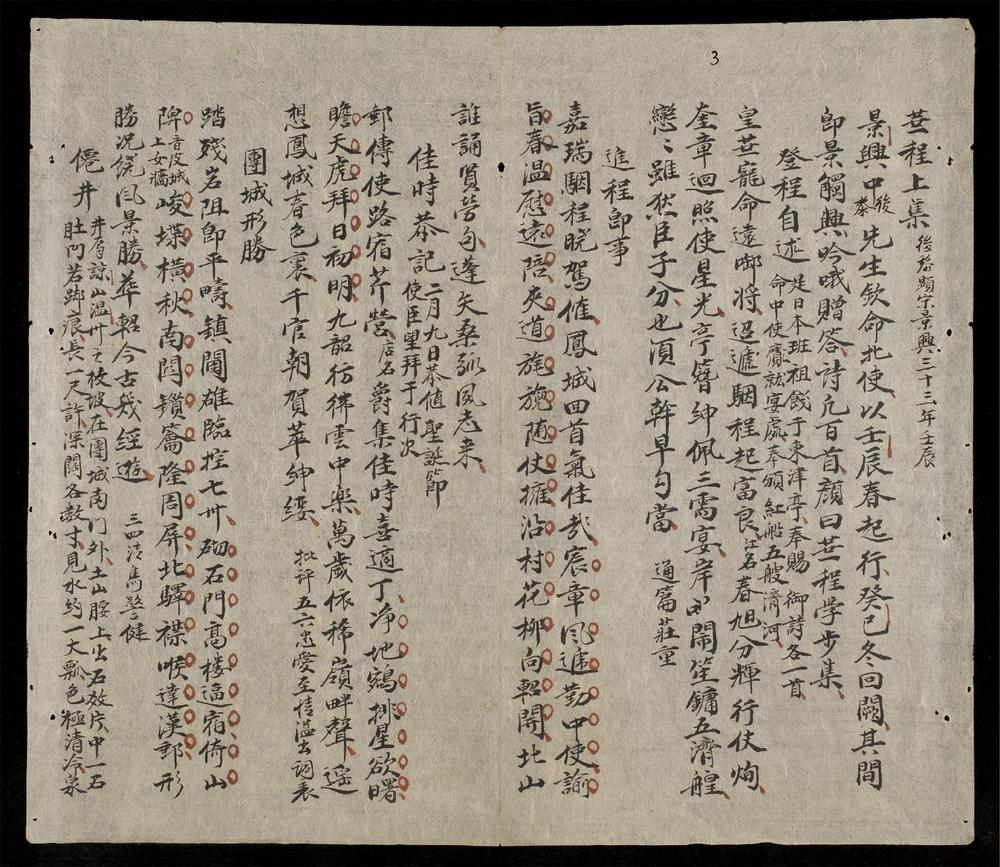 3
華程上集 後黎顯宗景興三十三年壬辰
景興中 後黎 先生欽命北使以壬辰春起行癸巳冬回闕其間
即景觸興吟哦贈答詩凡百首顏曰華程学步集
登程自述 是日本班祖餞于東津亭奉賜御詩各一首
命中使齎就宴處奉頒紅船五艘濟河
皇華寵命遠啣將迢遞駰程起富良 江名 春旭分輝行仗炯
奎章迴照使星光亭簪紳佩三霑宴岸 鬧笙鏞五濟艎
戀〻雖狀臣子分也須公幹早勾當 通篇莊重
進程即事
嘉瑞駰程曉駕倠鳳城回首氣佳哉宸章風遞勤中使諭
旨春溫慰遠陪夾道旌旄随仗擁沿村花柳向軺開北山
誰誦賢勞句蓬矢桑弧夙志来
佳時恭記 二月九日恭值聖誕節
使臣望拜于行次
郵傳使路宿芹營 店名 爵集佳時喜適丁净地鵷排星欲曙
瞻天虎拜日初明九韶彷彿雲中樂萬歲依稀嶺畔聲遥
想鳳城春色裏千官朝賀萃紳纓 批評五六忠愛至情溢出詞表
團城形勝
踏殘岩阻即平疇鎮閫雄臨控七州砌石門高樓逼宿倚山
陴 音皮城上女墻 峻堞横秋南関鎖籥隆周屏北驛襟喉達漢郵形
勝況繞風景勝華軺今古幾經遊 三四清雋警健
僊井 井肩諒山温州之枚坡在團城南門外土山腰上出石數片中一石
肚門若踋痕長一尺許深闊各数寸見水約一大瓢色極清冷泉